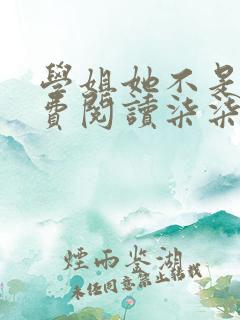 學姐她不是
費閱讀柒柒
煙雨鉴湖
未经同意禁止转载